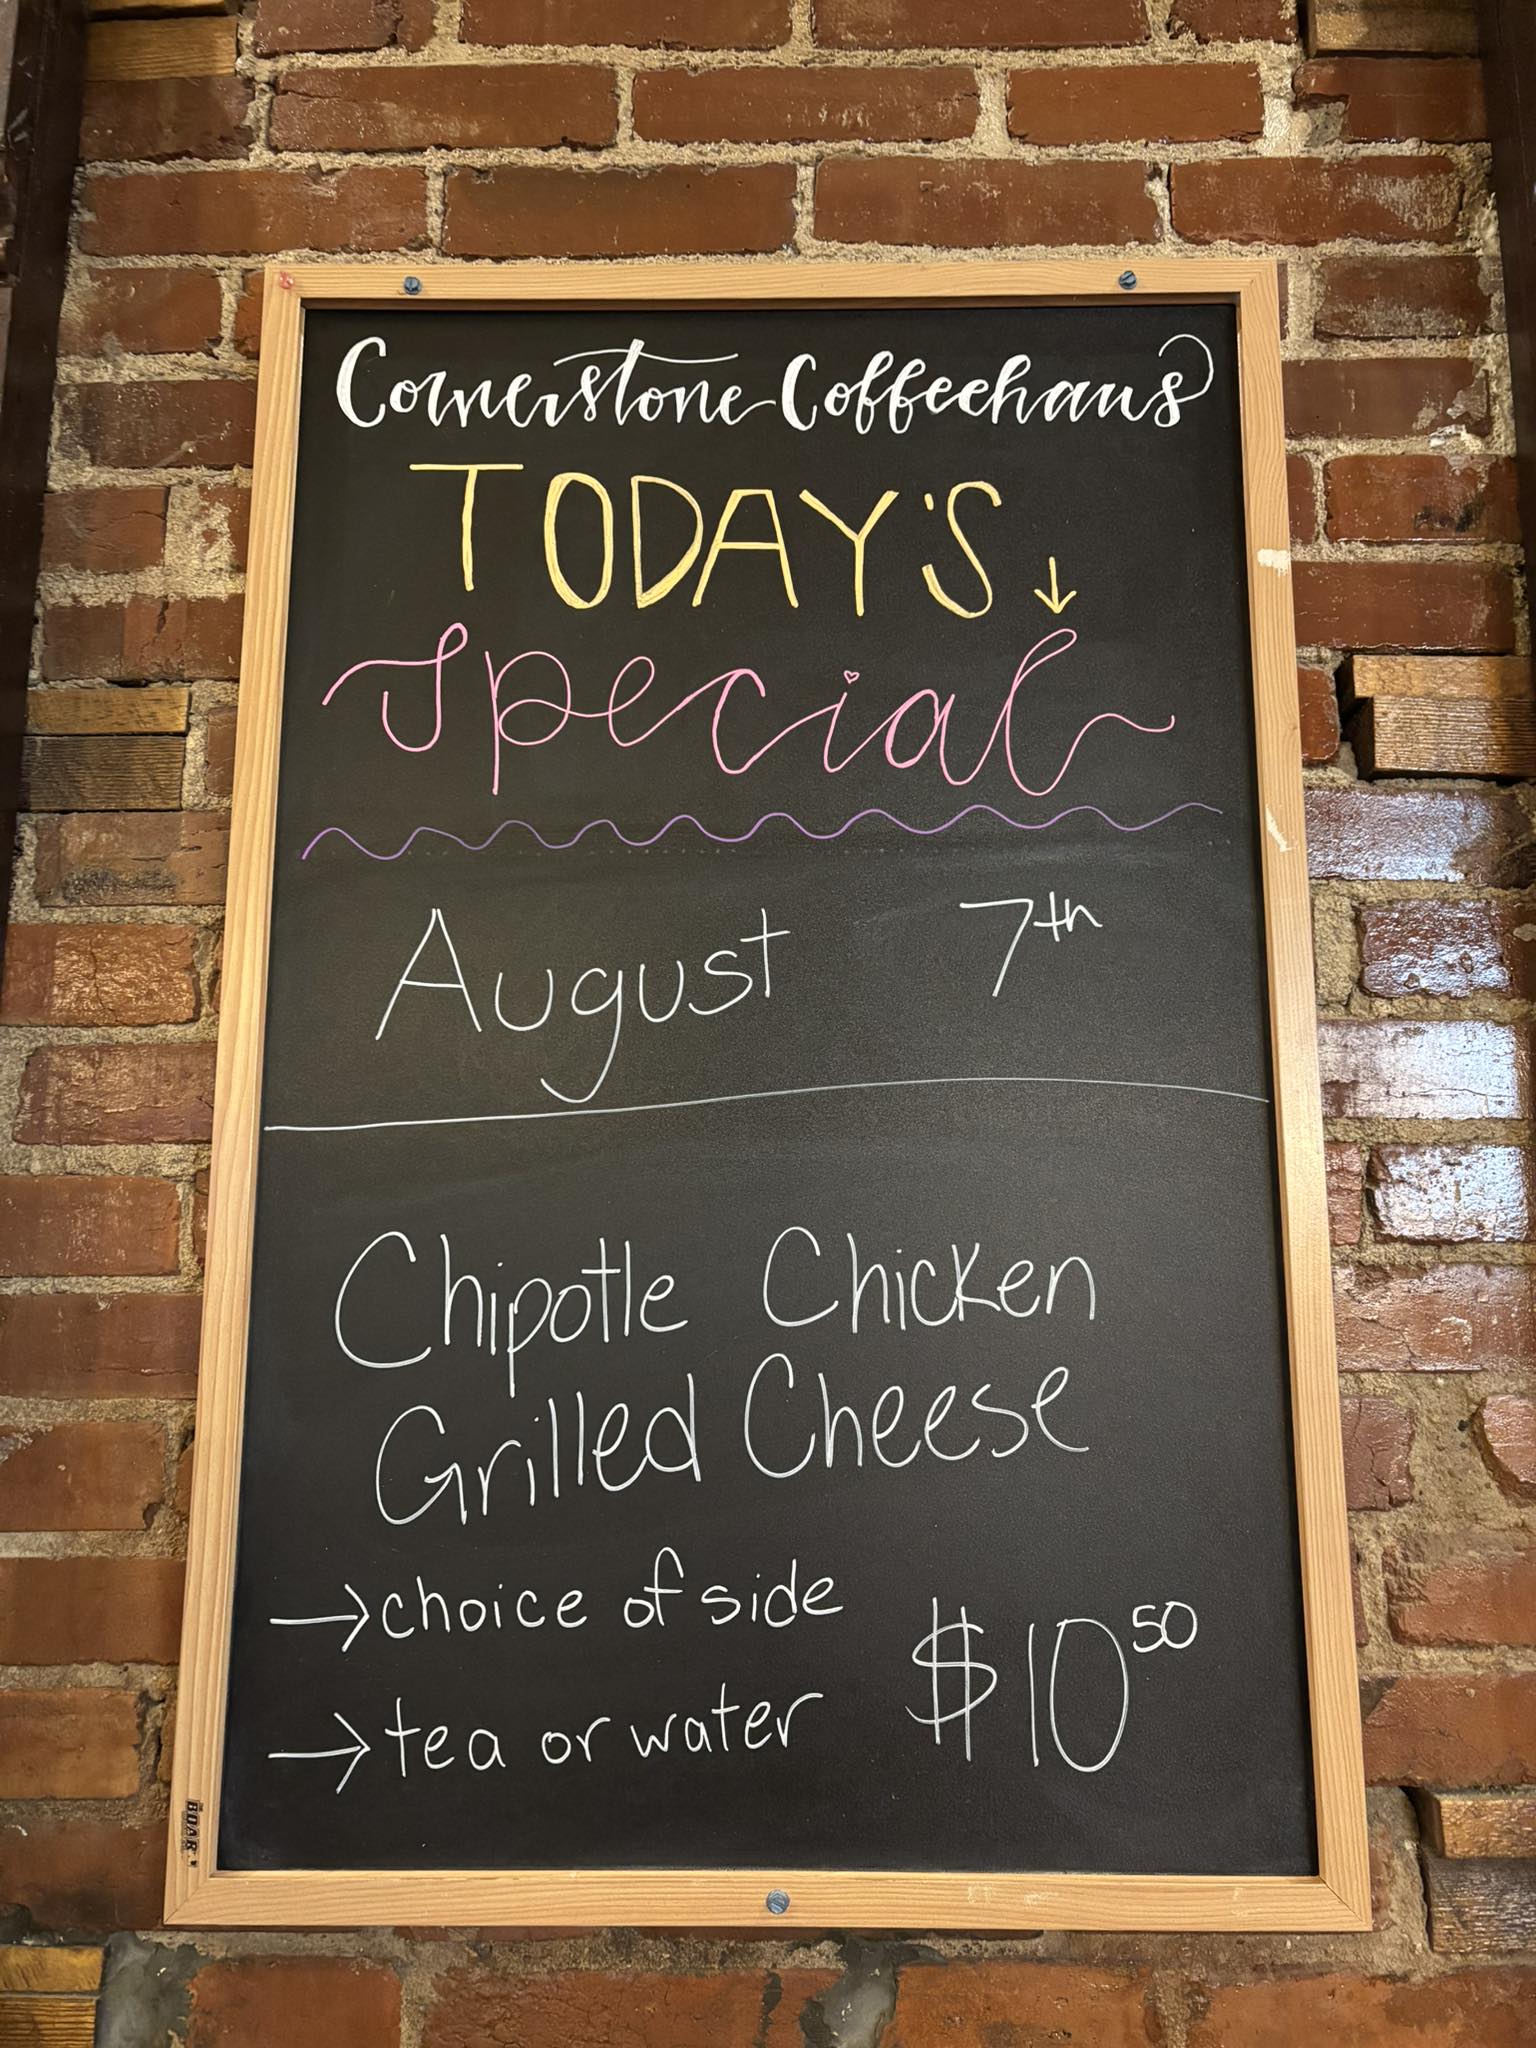 Cornerstone Coffeehaus
TODAY'S ↓
Special
August 7th
Chipotle Chicken
Grilled Cheese
→ choice of side
→ tea or water
$10 50
BOAR